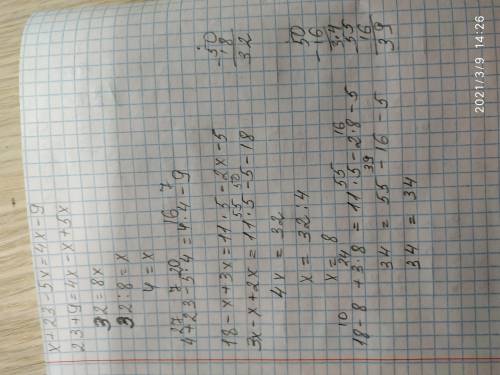 x+23-5x=4x-9
23+9=4x-x+5x
32=8x
32:8=x
4=x
27 7 20 16 7
4+23-5·4=4·4-9
18-x+3x=11·5-2x-5
55 50
3x-x+2x=11·5-5-18
-50
18
32
4x=32
x=32:4
x=8
-50
16
34
55
16
39
10 24 55 16
18-8+3·8=11·5-2·8-5
39
34=55-16-5
34=34
2021/3/9 14:26